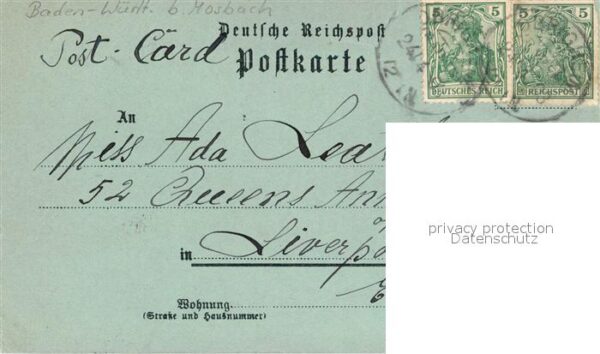 Baden-Württ. b. Mosbach
Deutsche Reichspost
Post-Card
Postkarte
5 5 5 5
DEUTSCHES REICH
REICHSPOST
An
Miss Ada Leat
52 Queens Ann
in Liverpo
Wohnung
(Straße und Hausnummer)
privacy protection
Datenschutz